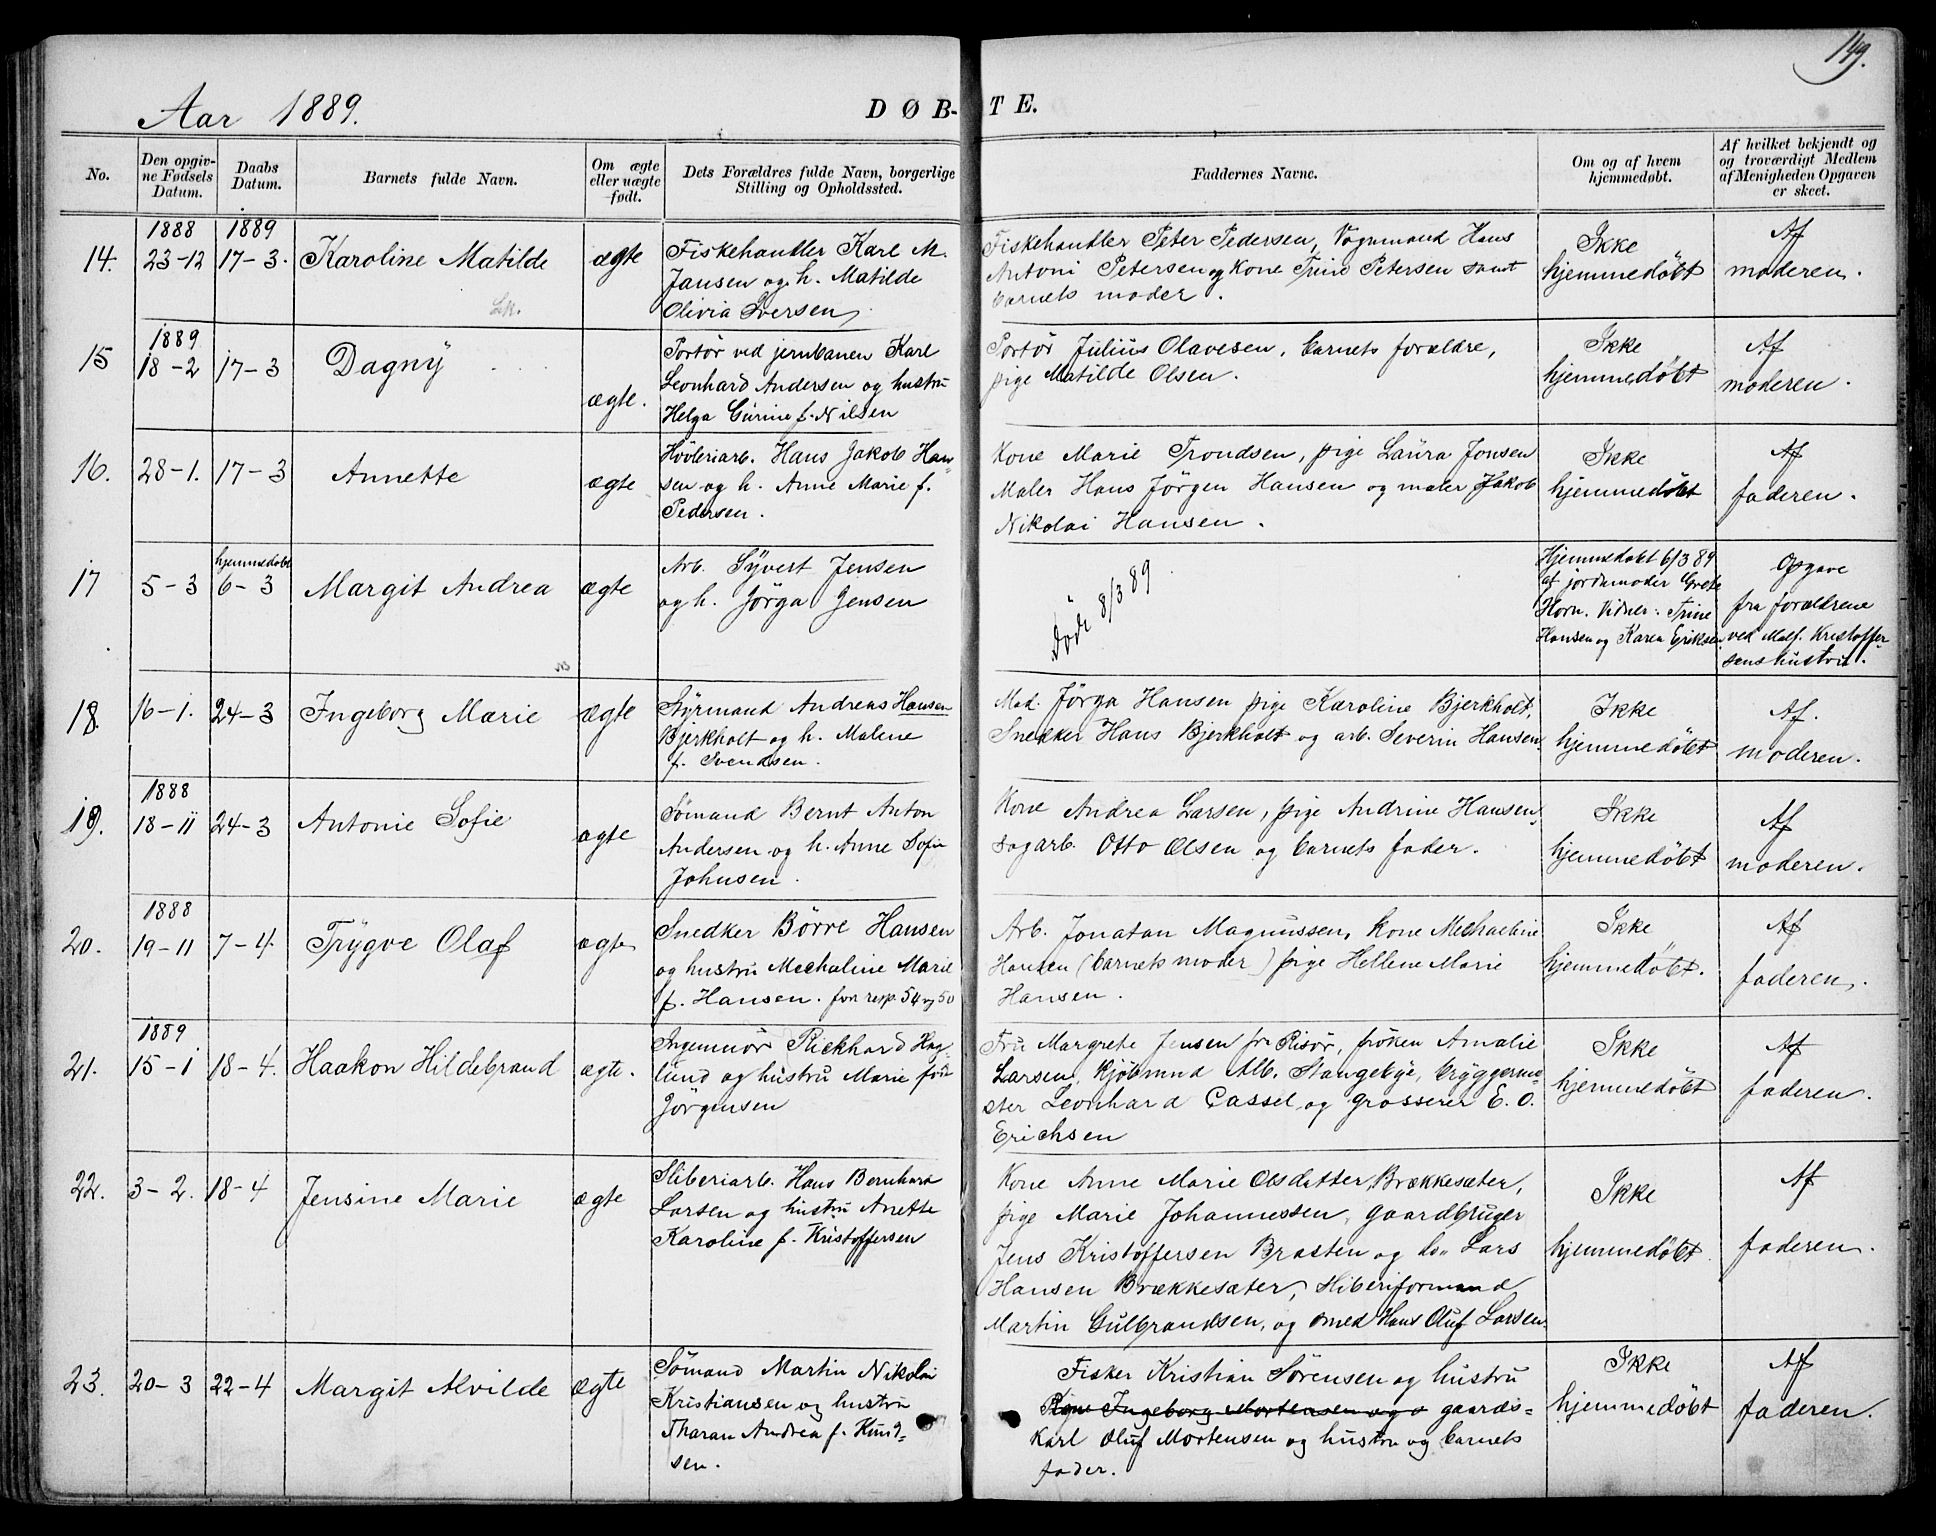 149.
Aar 1889.
DØB-TE.
No.
Den opgiv-
ne Fødsels
Datum.
Daabs
Datum.
Barnets fulde Navn.
Om ægte
eller uægte
født.
Dets Forældres fulde Navn, borgerlige
Stilling og Opholdssted.
Faddernes Navne.
Om og af hvem
hjemmedøbt.
Af hvilket bekjendt og
og troværdigt Medlem
af Menigheden Opgaven
er skeet.
14.
1888
23-12
1889
17-3.
Karoline Matilde
ægte
Fiskehandler Karl M.
Jansen og h. Matilde
Olivia Iversen
Fiskehandler Peter Pedersen, Vognmand Hans
Antoni Petersen og Kone Trine Petersen samt
barnets moder.
Ikke
hjemmedøbt
Af
moderen.
15
1889
18-2
17-3
Dagny
ægte.
Portør ved jernbanen Karl
Leonhard Andersen og hustru
Helga Gurine f. Nilsen
Portør Julius Olavesen, barnets forældre,
pige Matilde Olsen.
Ikke
hjemmedøbt
Af
moderen.
16.
28-1.
17-3
Annette
ægte
Høvleriarb. Hans Jakob Han-
sen og h. Anne Marie f.
Pedersen.
Kone Marie Trondsen, pige Laura Jonsen
Maler Hans Jørgen Hansen og maler Jakob
Nikolai Hansen.
Ikke
hjemmedøbt
Af
faderen.
17
5-3
hjemmedøbt
6-3
Margit Andrea
ægte
Arb. Syvert Jensen
og h. Jørga Jensen
Død 8/3 89
Hjemmedøbt 6/3 89
af jordmoder Grete
Horn. Vidner: Trine
Hansen og Karen Eriksen
Opgave
fra forældrene
ved Malf. Kristoffer-
sens hustru.
18.
16-1.
24-3
Ingeborg Marie
ægte
Styrmand Andreas Hansen
Bjerkholt og h. Malene
f. Svendsen.
Mad. Jørga Hansen pige Karoline Bjerkholt,
Snedker Hans Bjerkholt og arb. Severin Hansen
Ikke
hjemmedøbt
Af.
moderen.
19.
1888
18-11
24-3
Antonie Sofie
ægte
Sømand Bernt Anton
Andersen og h. Anne Sofie
Johnsen.
Kone Andrea Larsen, pige Andrine Hansen,
sagarb. Otto Olsen og barnets fader.
Ikke
hjemmedøbt
Af
moderen.
20.
1888
19-11
7-4.
Trygve Olaf
ægte
Snedker Børre Hansen
og hustru Mechaline Marie
f. Hansen. føn resp. 54 og 50
Arb. Jonatan Magnussen, kone Mechaeline
Hansen (barnets moder) pige Hellene Marie
Hansen.
Ikke
hjemmedøbt.
Af
faderen.
21.
1889
15-1
18-4.
Haakon Hildebrand
ægte.
Ingeniør Rickhard Hag-
lund og hustru Marie født
Jørgensen
Fru Margrete Jensen fr Risør, frøken Amalie
Larsen, Kjøbmnd Alb. Stangebye, bryggerme-
ster Leonhard Cassel, og grosserer E. O.
Erichsen
Ikke
hjemmedøbt
Af
faderen.
22.
3-2.
18-4
Jensine Marie
ægte
Sliberiarb. Hans Bernhard
Larsen og hustru Anette
Karoline f. Kristoffersen
Kone Anne Marie Olsdatter Brækkesæter,
pige Marie Johannessen, gaardbruger
Jens Kristoffersen Bråsten og do. Lars
Hansen Brækkesæter, Sliberiformand
Martin Gulbrandsen, og smed Hans Oluf Larsen
Ikke
hjemmedøbt
Af
faderen.
23.
20-3
22-4
Margit Alvilde
ægte
Sømand Martin Nikolai
Kristiansen og hustru
Tharan Andrea f. Knud-
sen.
Fisker Kristian Sørensen og hustru
Pige Ingeborg Mortensen og gaards-
Karl Oluf Mortensen og hustru og barnets
fader.
Ikke
hjemmedøbt
Af
faderen.